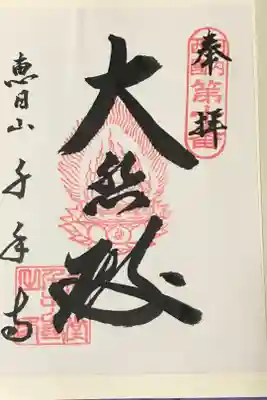 奉拝
大悲殿
恵日山 千手寺